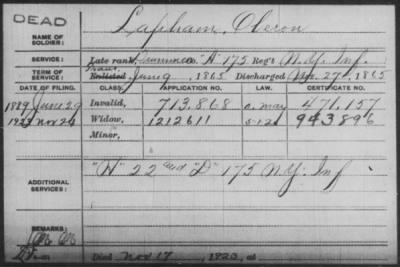 DEAD
NAME OF SOLDIER: Lapham, Oberon
SERVICE: Late rank, "H" 175 Reg't N.Y. Inf.
TERM OF SERVICE: Enlisted June 9, 1865 Discharged Nov. 27, 1865
DATE OF FILING. CLASS. APPLICATION NO. LAW. CERTIFICATE NO.
1889 June 29 Invalid, 713.868 471,157
Nov 24 Widow, 1212611 943896
Minor,
ADDITIONAL SERVICES: "H" 22 and "D" 175 N.Y. Inf
REMARKS:
Died Nov 17, 1923, at